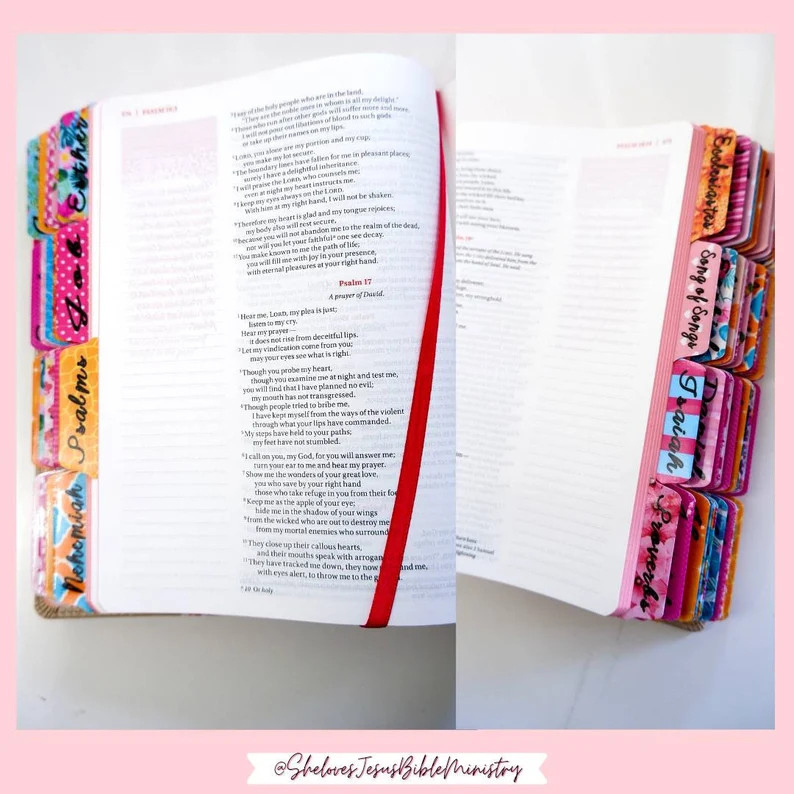 Esther
Job
Psalms
Nehemiah
PSALM 16:3
³I say of the holy people who are in the land,
"They are the noble ones in whom is all my delight."
⁴Those who run after other gods will suffer more and more.
I will not pour out libations of blood to such gods
or take up their names on my lips.
⁵LORD, you alone are my portion and my cup;
you make my lot secure.
⁶The boundary lines have fallen for me in pleasant places;
surely I have a delightful inheritance.
⁷I will praise the LORD, who counsels me;
even at night my heart instructs me.
⁸I keep my eyes always on the LORD.
With him at my right hand, I will not be shaken.
⁹Therefore my heart is glad and my tongue rejoices;
my body also will rest secure,
¹⁰because you will not abandon me to the realm of the dead,
nor will you let your faithful ᵃ one see decay.
¹¹You make known to me the path of life;
you will fill me with joy in your presence,
with eternal pleasures at your right hand.
Psalm 17
A prayer of David.
¹Hear me, LORD, my plea is just;
listen to my cry.
Hear my prayer—
it does not rise from deceitful lips.
²Let my vindication come from you;
may your eyes see what is right.
³Though you probe my heart,
though you examine me at night and test me,
you will find that I have planned no evil;
my mouth has not transgressed.
⁴Though people tried to bribe me,
I have kept myself from the ways of the violent
through what your lips have commanded.
⁵My steps have held to your paths;
my feet have not stumbled.
⁶I call on you, my God, for you will answer me;
turn your ear to me and hear my prayer.
⁷Show me the wonders of your great love,
you who save by your right hand
those who take refuge in you from their
⁸Keep me as the apple of your eye;
hide me in the shadow of your wings
⁹from the wicked who are out to destroy me
from my mortal enemies who surround
¹⁰They close up their callous hearts,
and their mouths speak with
¹¹They have tracked me down, they now me,
with eyes alert, to throw me to the
ᵃ 10 Or holy
Ecclesiastes
Song of Songs
Isaiah
Proverbs
@ShelovesJesusBibleMinistry